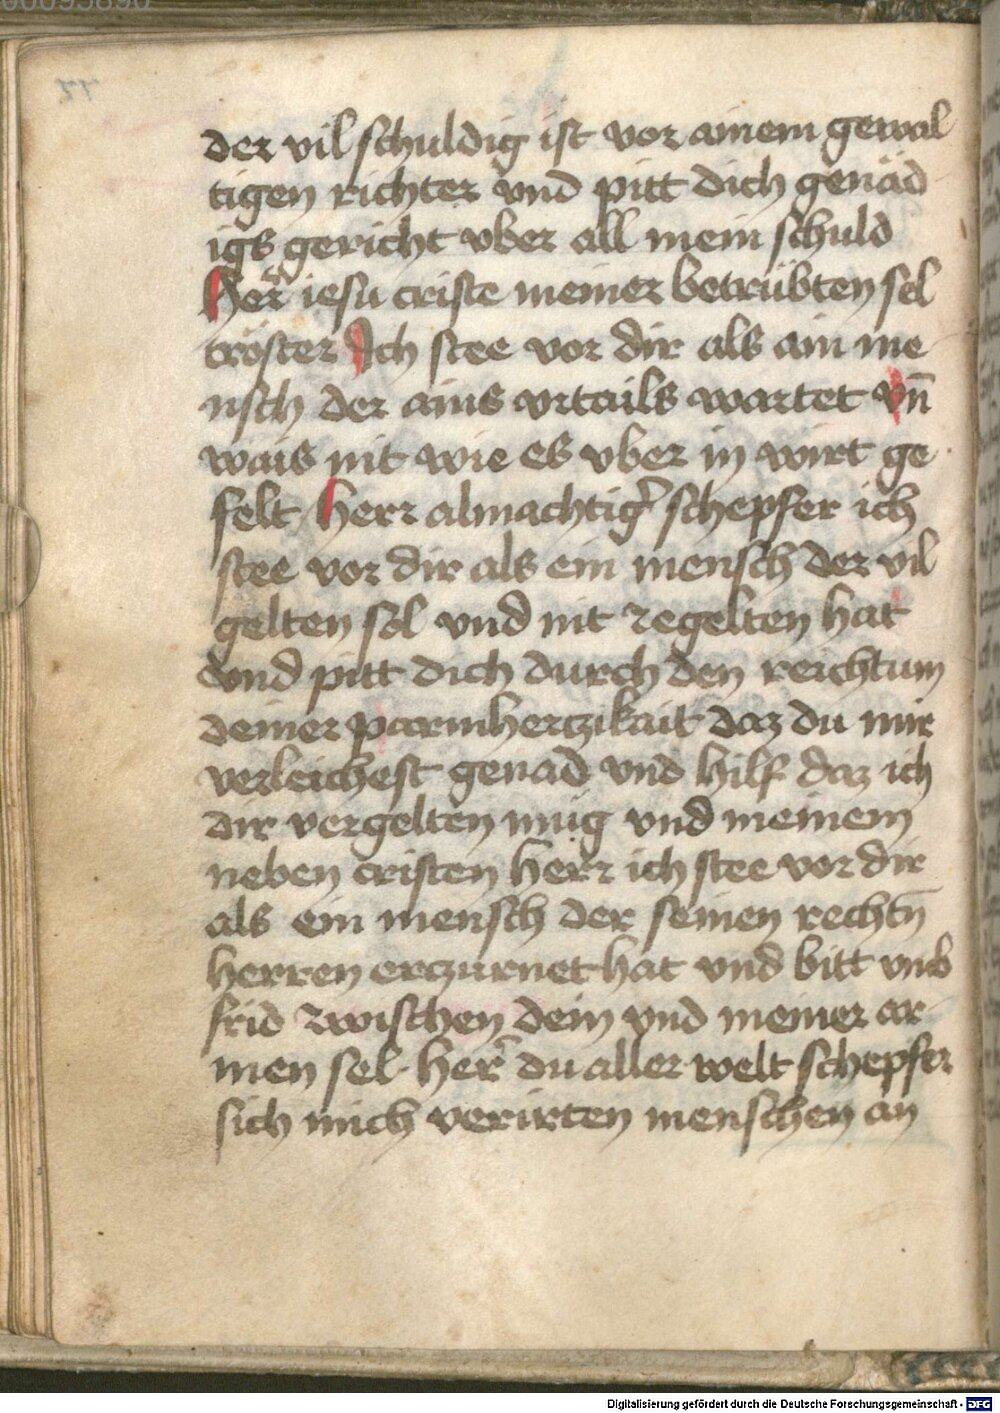 der vil schuldig ist vor ainem gewal
tigen richter vnd pitt dich genäd
igs gericht vber all mein schuld
Herr iesu criste meiner betrübten sel
tröster Ich stee vor dir als ain me
nsch der ains vrtails wartet vn̄
wais nit wie es vber in wirt ge
felt Herr almachtig̾ schepfer ich
stee vor dir als ein mensch der vil
gelten sol vnd nit zegelten hat
vnd pitt dich durch den reichtum
deiner parmherczikait daz du mir
verleichest genad vnd hilf daz ich
dir vergelten müg vnd meinem
neben cristen Herr ich stee vor dir
als ein mensch der seinen rechtn̄
herren erczurnet hat vnd bitt vmb
frid zwischen dein vnd meiner ar
men sel· her̾ du aller welt schepfer
sich mich verirten menschen an
Digitalisierung gefördert durch die Deutsche Forschungsgemeinschaft - DFG